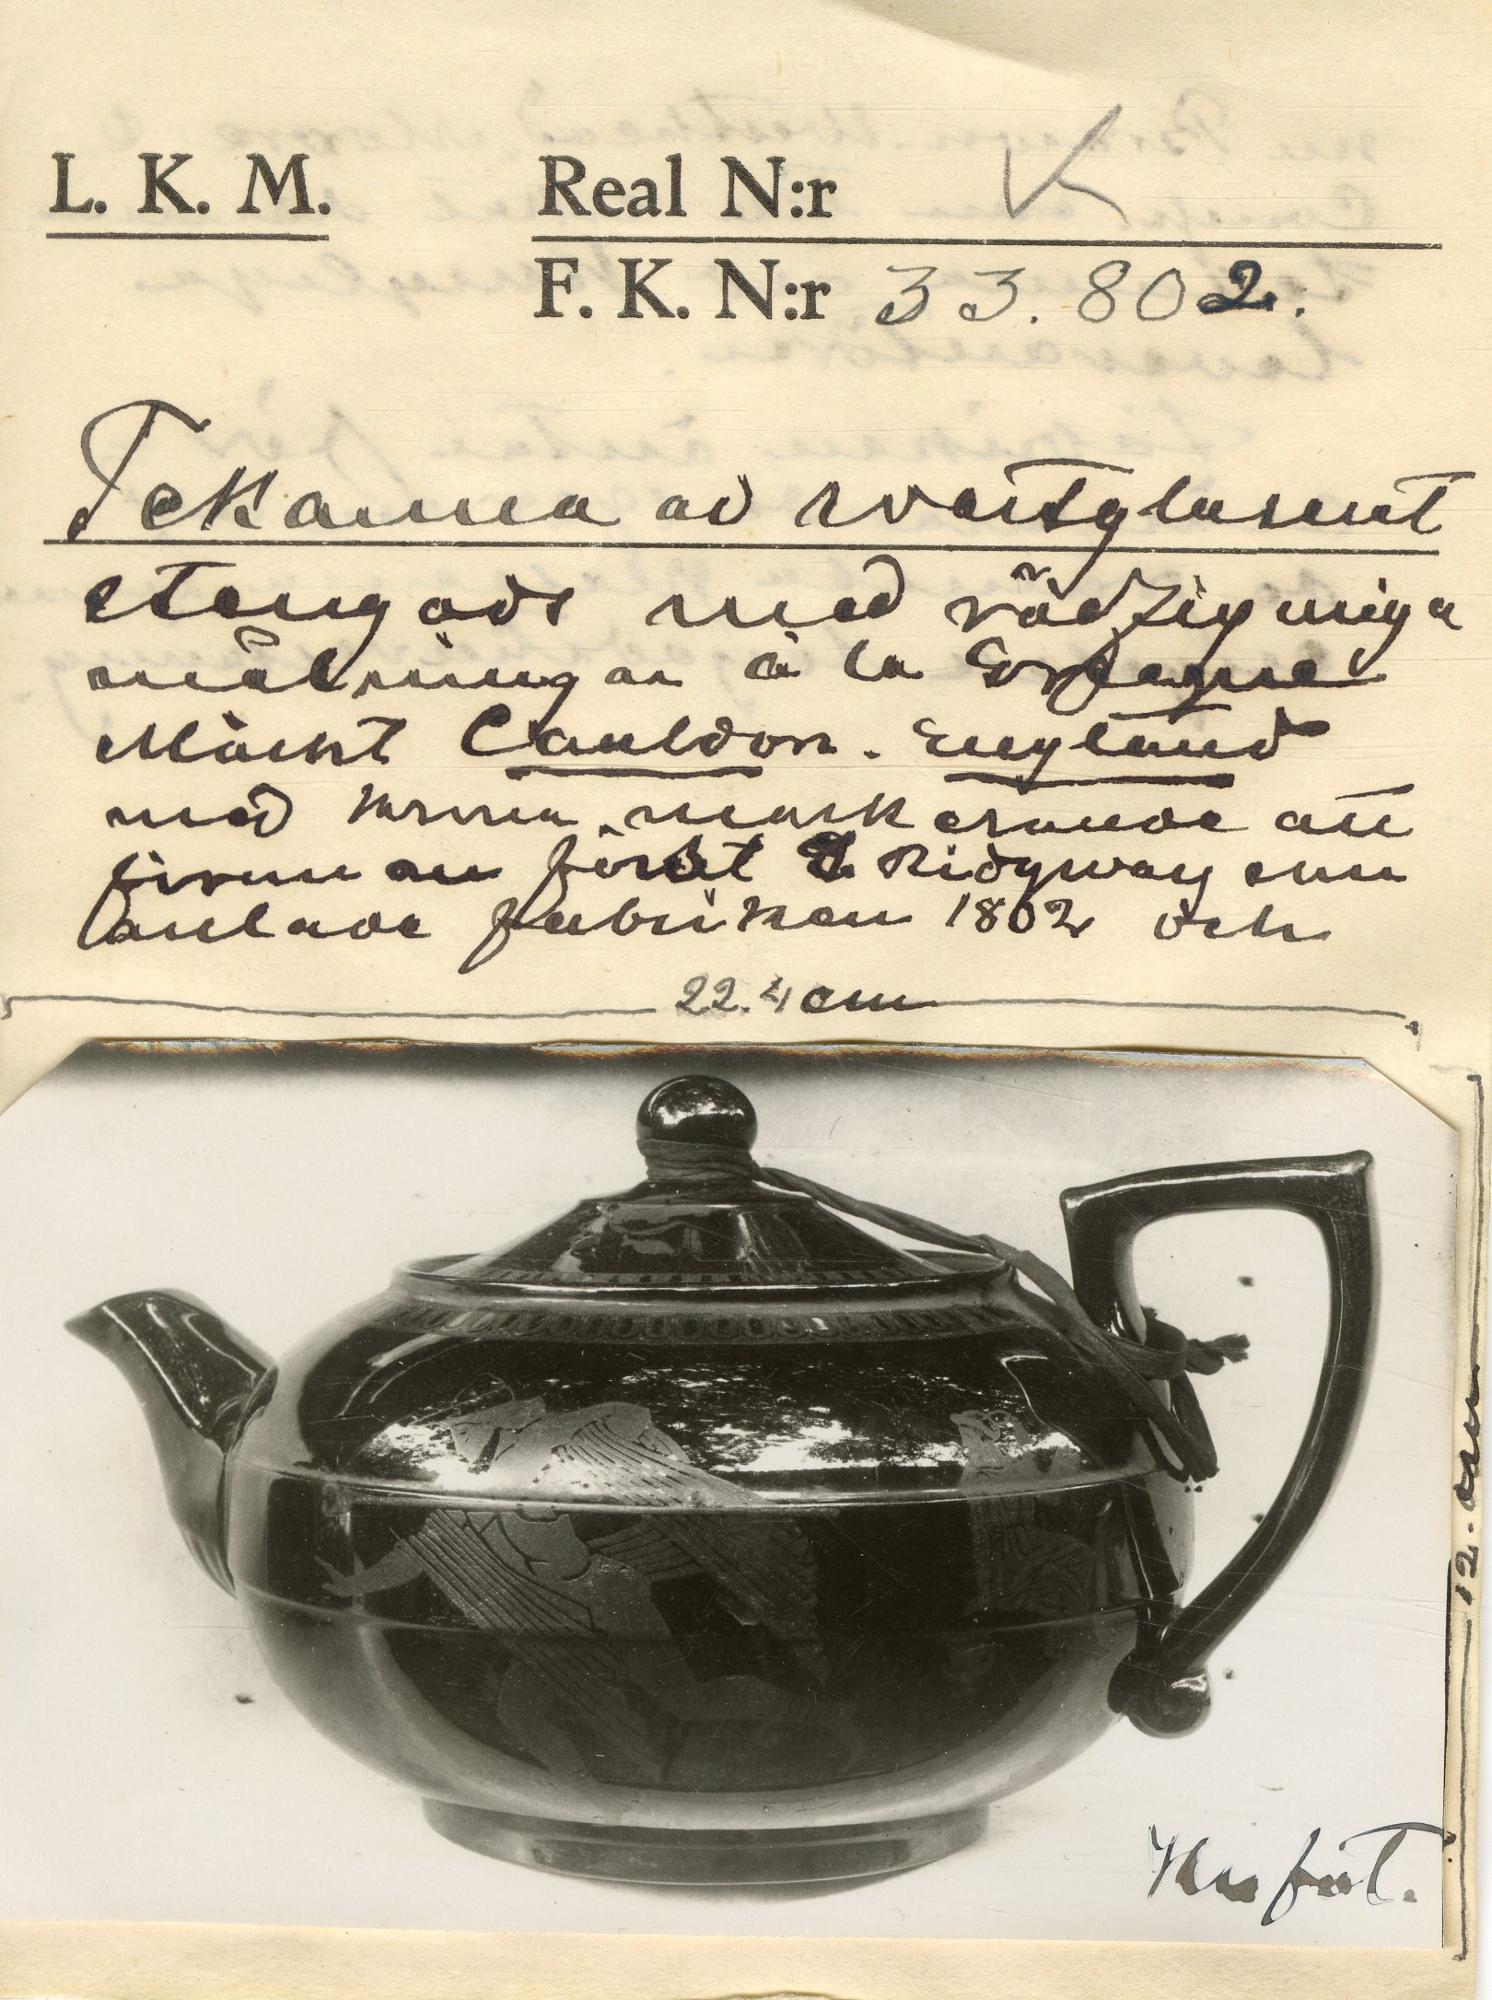 L. K. M.
Real N:r K
F. K. N:r 33.802.
Tekanna av svartglaserat
stengods med rödfiguriga
målningar à la
Märkt Cauldon. England
med krona, markerande att
firman först J. Ridgway som
anlade fabriken 1802 och
22.4 cm
12. cm